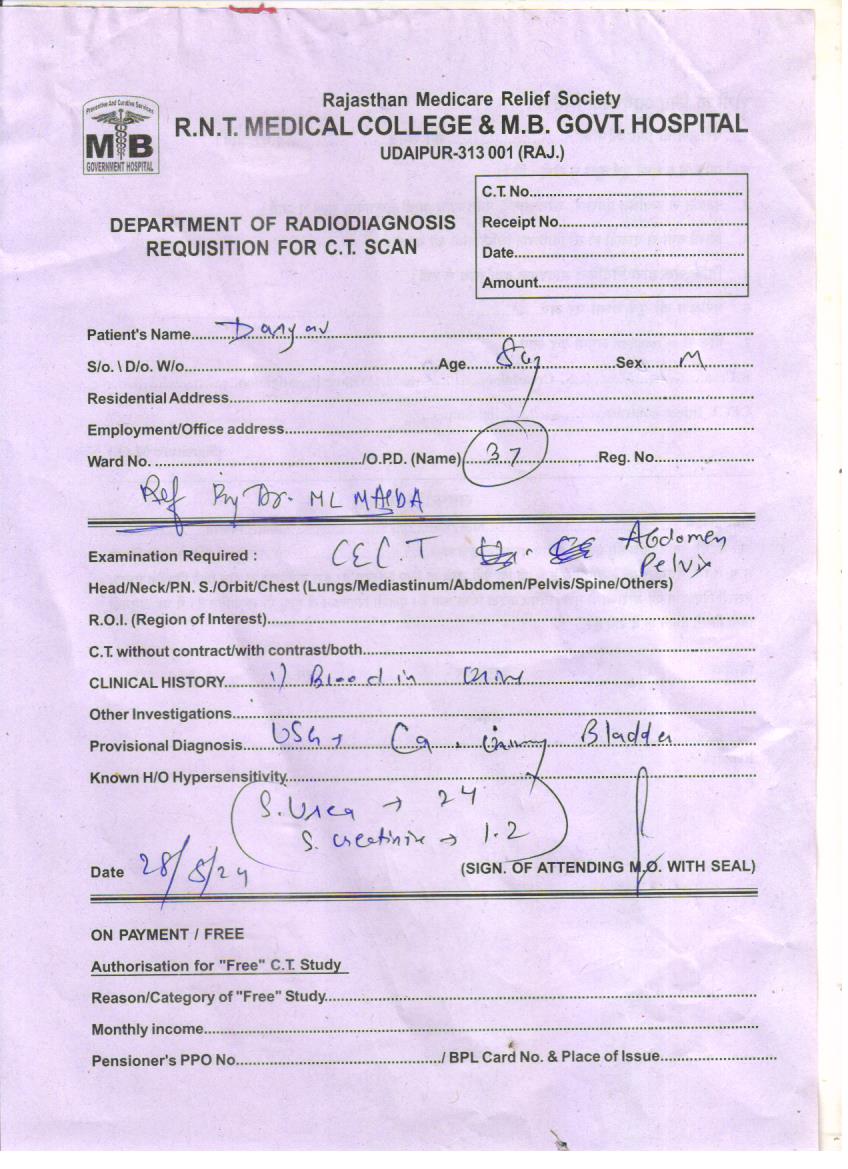 Preventive And Curative Services
MB
GOVERNMENT HOSPITAL
Rajasthan Medicare Relief Society
R.N.T. MEDICAL COLLEGE & M.B. GOVT. HOSPITAL
UDAIPUR-313 001 (RAJ.)
C.T. No.
Receipt No.
Date
Amount
DEPARTMENT OF RADIODIAGNOSIS
REQUISITION FOR C.T. SCAN
Patient's Name
S/o. \ D/o. W/o. Age Sex. M
Residential Address
Employment/Office address
Ward No. /O.P.D. (Name) 37 Reg. No.
Ref By Dr. ML
Examination Required : CECT Abdomen
Pelvis
Head/Neck/P.N. S./Orbit/Chest (Lungs/Mediastinum/Abdomen/Pelvis/Spine/Others)
R.O.I. (Region of Interest)
C.T. without contract/with contrast/both
CLINICAL HISTORY 1) Blood in urine
Other Investigations
Provisional Diagnosis USG → Ca. urinary Bladder
Known H/O Hypersensitivity
S. Urea → 24
S. creatinine → 1.2
Date 28/8/24 (SIGN. OF ATTENDING M.O. WITH SEAL)
ON PAYMENT / FREE
Authorisation for "Free" C.T. Study
Reason/Category of "Free" Study
Monthly income
Pensioner's PPO No. / BPL Card No. & Place of Issue